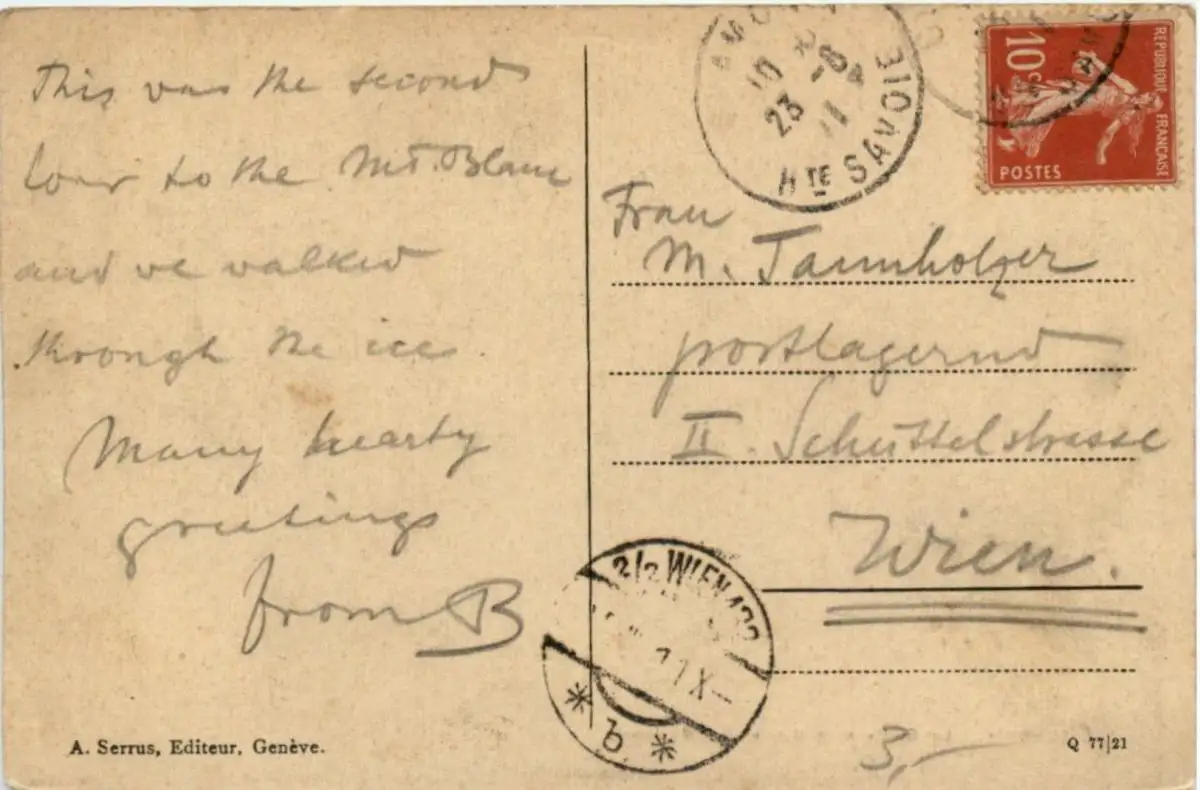 This was the second
tour to the Mt. Blanc
and we walked
through the ice.
Many hearty
greetings
from B
A. Serrus, Editeur, Genève.
10
23 -8
11
Hte SAVOIE
REPUBLIQUE FRANÇAISE
10c
POSTES
Frau
M. Tannholzer
postlagernd
II. Schüttelstrasse
Wien.
2/2 WIEN
X
* b *
3,-
Q 77|21